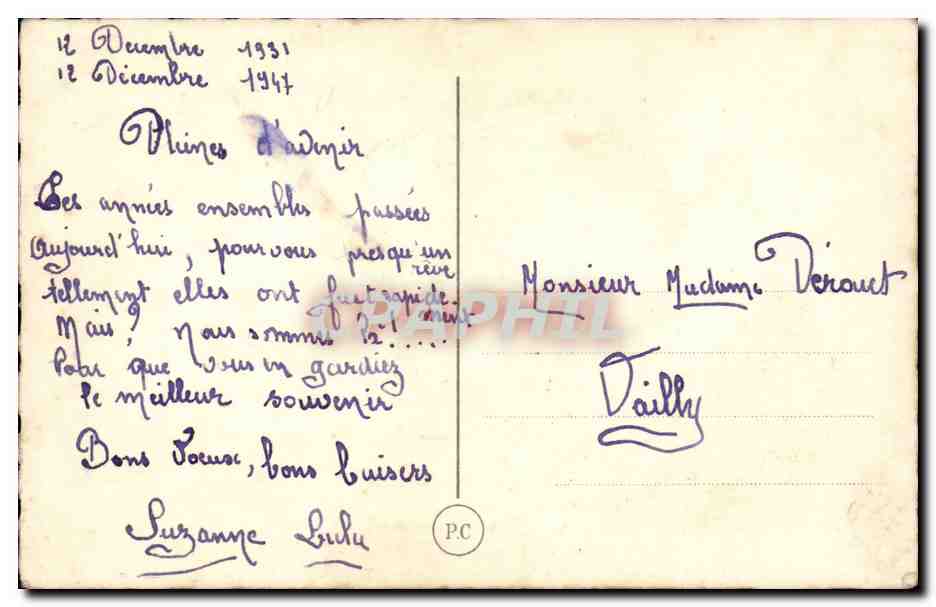 12 Décembre 1931
12 Décembre 1947
Pleines d'avenir
Les années ensembles passées
Aujourd'hui, pour vous presqu'un
rêve
tellement elles ont fuet rapide-
ment
Mais! Nous sommes là!.....
Pour que vous en gardiez
le meilleur souvenir
Bons Voeux, bons baisers
Suzanne Lulu
Monsieur Madame Dérouet
Vailly
P.C